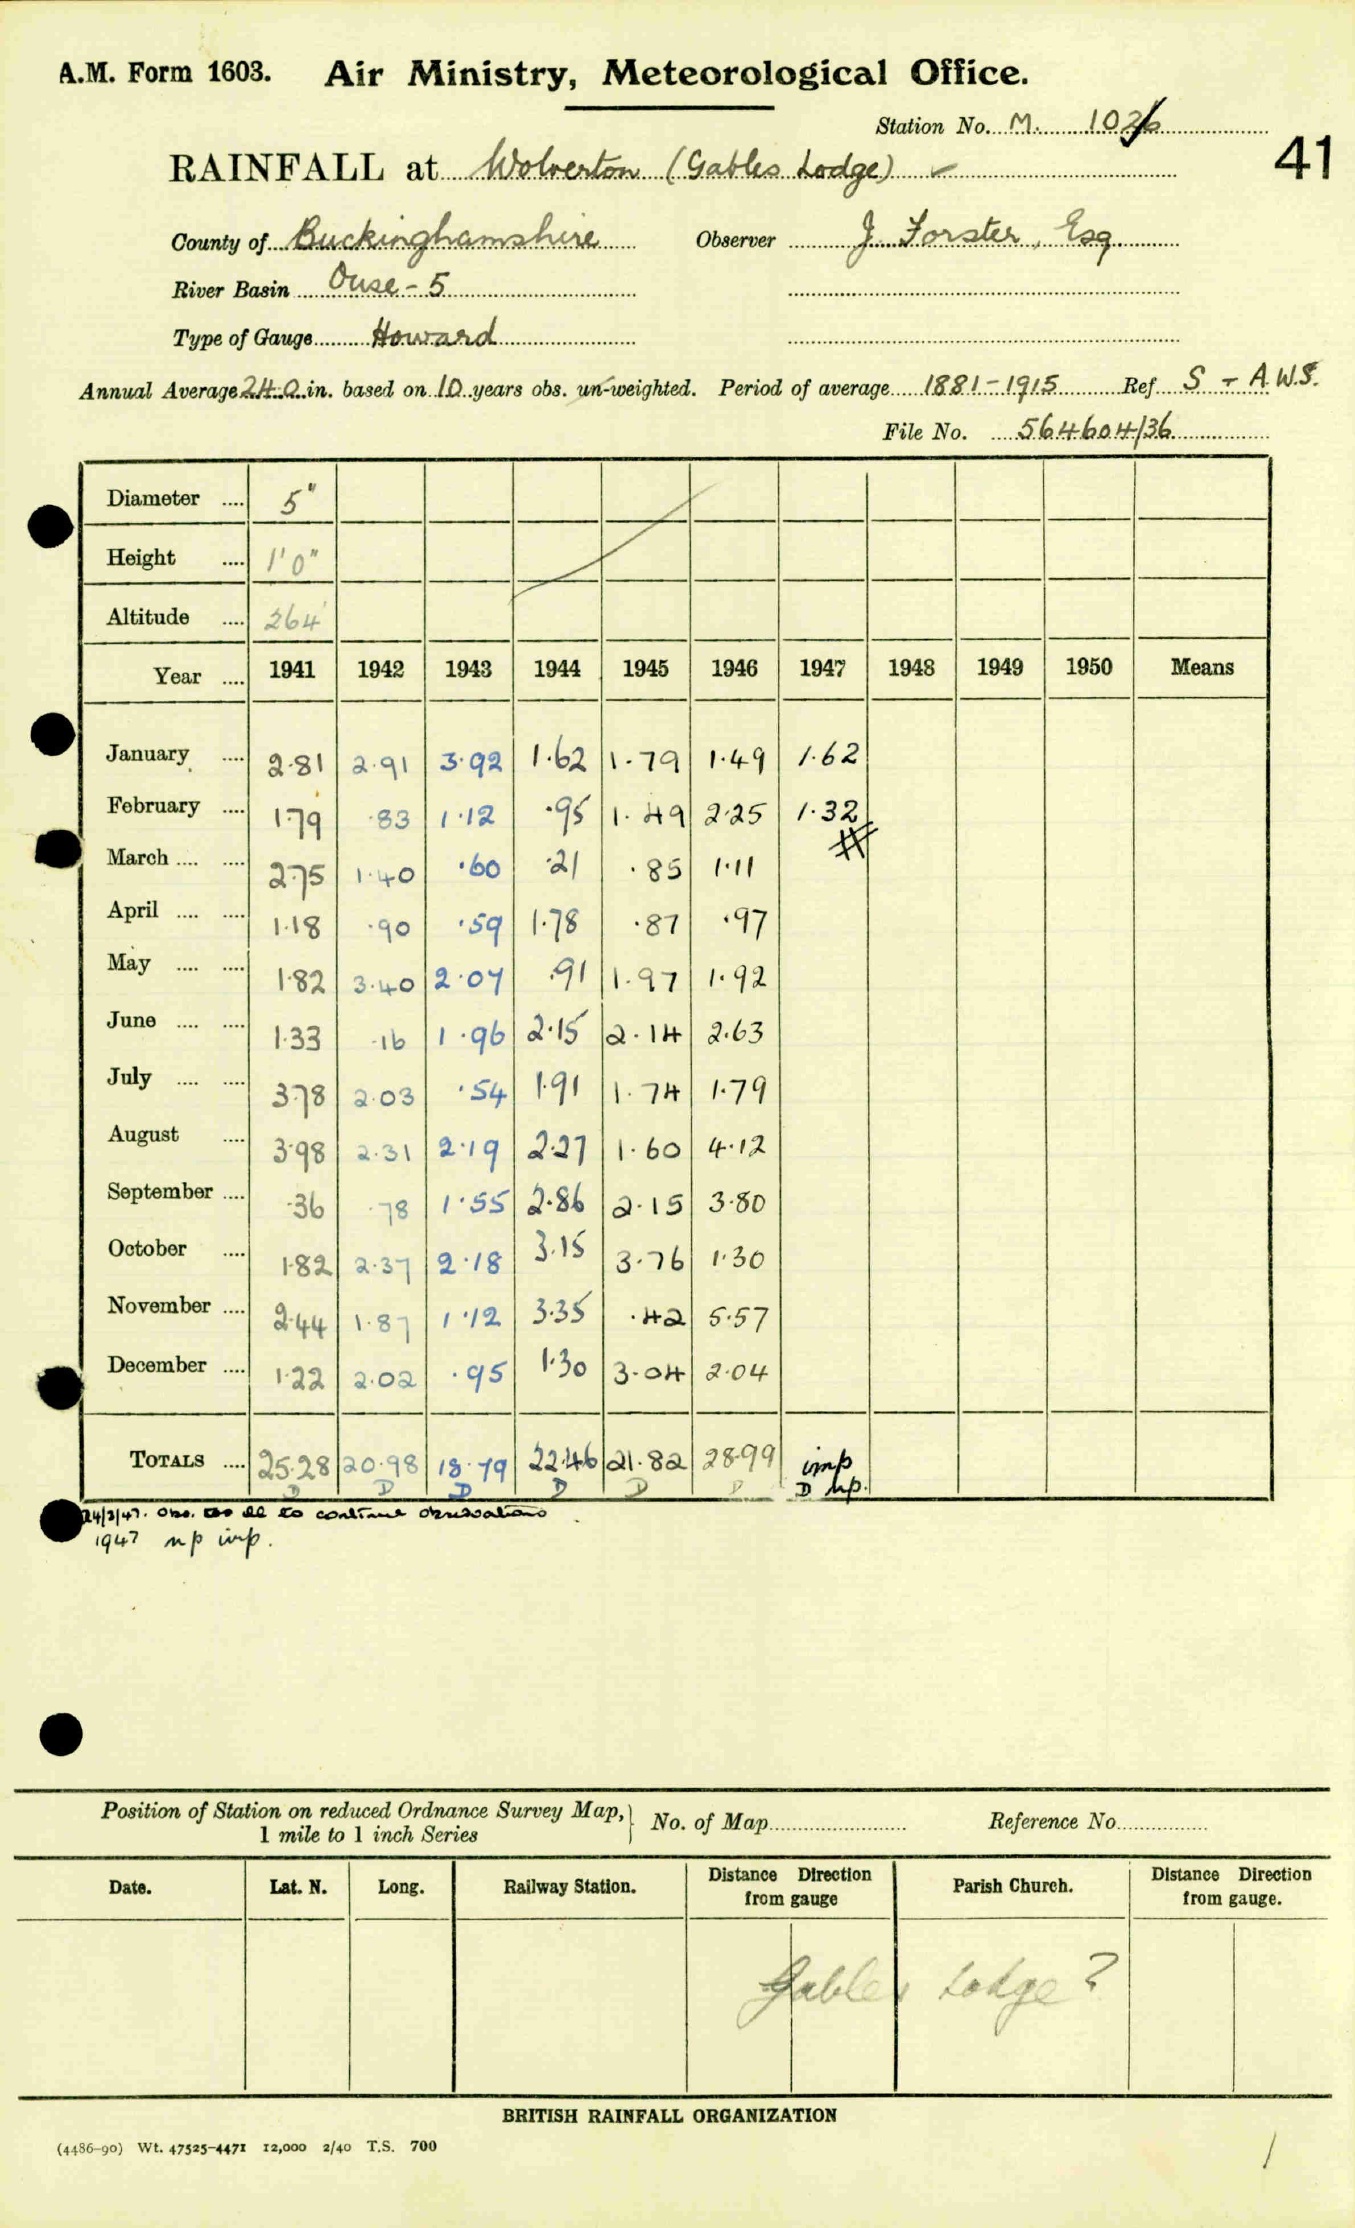 A.M. Form 1603. Air Ministry, Meteorological Office.
Station No. M. 1026
41
RAINFALL at Wolverton (Gables Lodge) ✓
County of Buckinghamshire Observer J. Forster, Esq
River Basin Ouse - 5
Type of Gauge Howard
Annual Average 24.0 in. based on 10 years obs. un-weighted. Period of average 1881-1915 Ref S - A.W.S.
File No. 564604/36
Diameter .... 5"
Height .... 1'0"
Altitude .... 264'
Year .... 1941 1942 1943 1944 1945 1946 1947 1948 1949 1950 Means
January .... 2.81 2.91 3.92 1.62 1.79 1.49 1.62
February .... 1.79 .83 1.12 .95 1.49 2.25 1.32
March .... .... 2.75 1.40 .60 .21 .85 1.11
April .... .... 1.18 .90 .59 1.78 .87 .97
May .... .... 1.82 3.40 2.07 .91 1.97 1.92
June .... .... 1.33 .16 1.96 2.15 2.14 2.63
July .... .... 3.78 2.03 .54 1.91 1.74 1.79
August .... 3.98 2.31 2.19 2.27 1.60 4.12
September .... .36 .78 1.55 2.86 2.15 3.80
October .... 1.82 2.37 2.18 3.15 3.76 1.30
November .... 2.44 1.87 1.12 3.35 .42 5.57
December .... 1.22 2.02 .95 1.30 3.04 2.04
TOTALS .... 25.28 20.98 18.79 22.46 21.82 28.99 imp
D D D D D D D np.
24/3/47. Obs. too ill to continue observations
1947 np imp.
Position of Station on reduced Ordnance Survey Map, 1 mile to 1 inch Series } No. of Map Reference No
Date. Lat. N. Long. Railway Station. Distance Direction from gauge Parish Church. Distance Direction from gauge.
Gables Lodge?
BRITISH RAINFALL ORGANIZATION
(4486-90) Wt. 47525-4471 12,000 2/40 T.S. 700